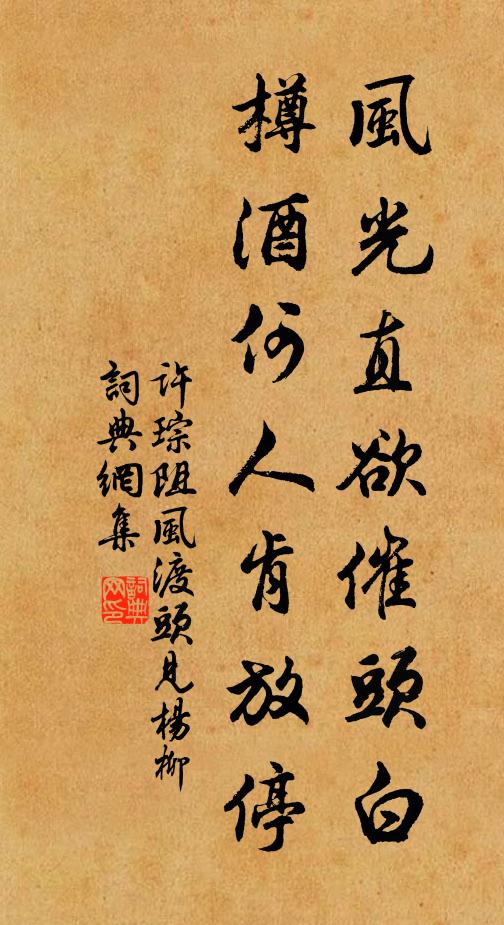 風光直欲催頭白
樽酒何人肯放停
許琮阻風渡頭見楊柳
詞典網集
詞典網印